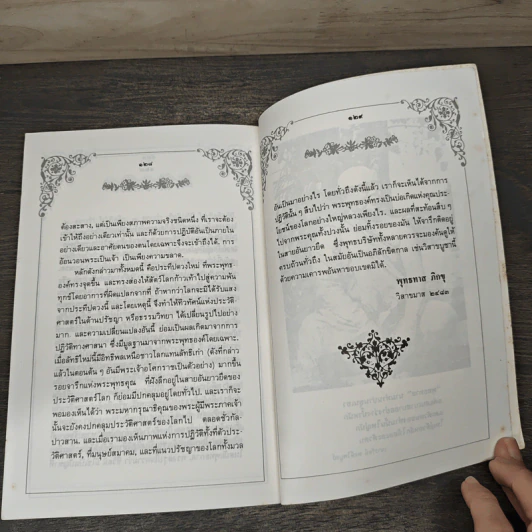 ๑๒๘
ต้องสะสาง, แต่เป็นเพียงสภาพความจริงชนิดหนึ่ง ที่เราจะต้อง
เข้าให้ถึงอย่างเดียวเท่านั้น และก็ด้วยการปฏิบัติอันเป็นภายใน
อย่างเดียวและอาศัยตนของตนโดยเฉพาะจึงจะเข้าถึงได้. การ
อ้อนวอนพระเป็นเจ้า เป็นเพียงความขลาด.
หลักดังกล่าวมาทั้งหมดนี้ คือประทีปดวงใหม่ ที่พระพุทธ-
องค์ทรงจุดขึ้น และทรงส่องให้สัตว์โลกก้าวเท้าไปสู่ความพ้น
ทุกข์โดยอาการที่ผิดแปลกจากที่ ถ้าหากว่าโลกจะมิได้รับแสง
จากประทีปดวงนี้ และโดยเหตุนี้ จึงทำให้ทิวทัศน์แห่งประวัติ-
ศาสตร์ในด้านปรัชญา หรือธรรมวิทยา ได้เปลี่ยนรูปไปอย่าง
มาก. และความเปลี่ยนแปลงอันนี้ ย่อมเป็นผลเกิดมาจากการ
ปฏิวัติทางศาสนา ซึ่งมีมูลฐานมาจากพระพุทธองค์โดยเฉพาะ.
เมื่อลัทธิใหม่นี้มีอิทธิพลเหนือชาวโลกแทนลัทธิเก่า (ดังที่กล่าว
แล้วในตอนต้น ๆ อันมีพระเจ้าอโศกราชเป็นตัวอย่าง) มากขึ้น
รอยจารึกแห่งพระพุทธคุณ ที่ฝังลึกอยู่ในสายอันยาวยืดของ
ประวัติศาสตร์โลก ก็ย่อมมีปกคลุมอยู่โดยทั่วไป. และเราก็จะ
พอมองเห็นได้ว่า พระมหากรุณาธิคุณของพระผู้มีพระภาคเจ้า
นั้นจะยังคงปกคลุมประวัติศาสตร์ของโลกไป ตลอดชั่วกัล-
ปาวสาน. และเมื่อเรามองเห็นภาพแห่งการปฏิวัติทั้งที่ตัวประ-
วัติศาสตร์, ที่มนุษย์สมาคม, และที่แนวปรัชญาของโลกทั้งมวล
๑๒๙
อันเป็นมาอย่างไร โดยทั่วถึงดังนี้แล้ว เราก็จะเห็นได้จากการ
ปฏิวัตินั้น ๆ สืบไปว่า พระพุทธองค์ทรงเป็นบ่อเกิดแห่งคุณประ-
โยชน์ของโลกอย่างใหญ่หลวงเพียงไร. และผลที่สะท้อนสืบ ๆ
ไปจากพระคุณทั้งปวงนั้น ย่อมทิ้งรอยของมัน ให้จารึกติดอยู่
ในสายอันยาวยืด ซึ่งพุทธบริษัททั้งหลายควรจะมองค้นดูให้
ครบถ้วนทั่วถึง ในสมัยอันเป็นอภิลักขิตกาล เช่นวิสาขบูชานี้
ด้วยความเคารพอันหาขอบเขตมิได้.
พุทธทาส ภิกขุ
วิสาขมาส ๒๔๘๓